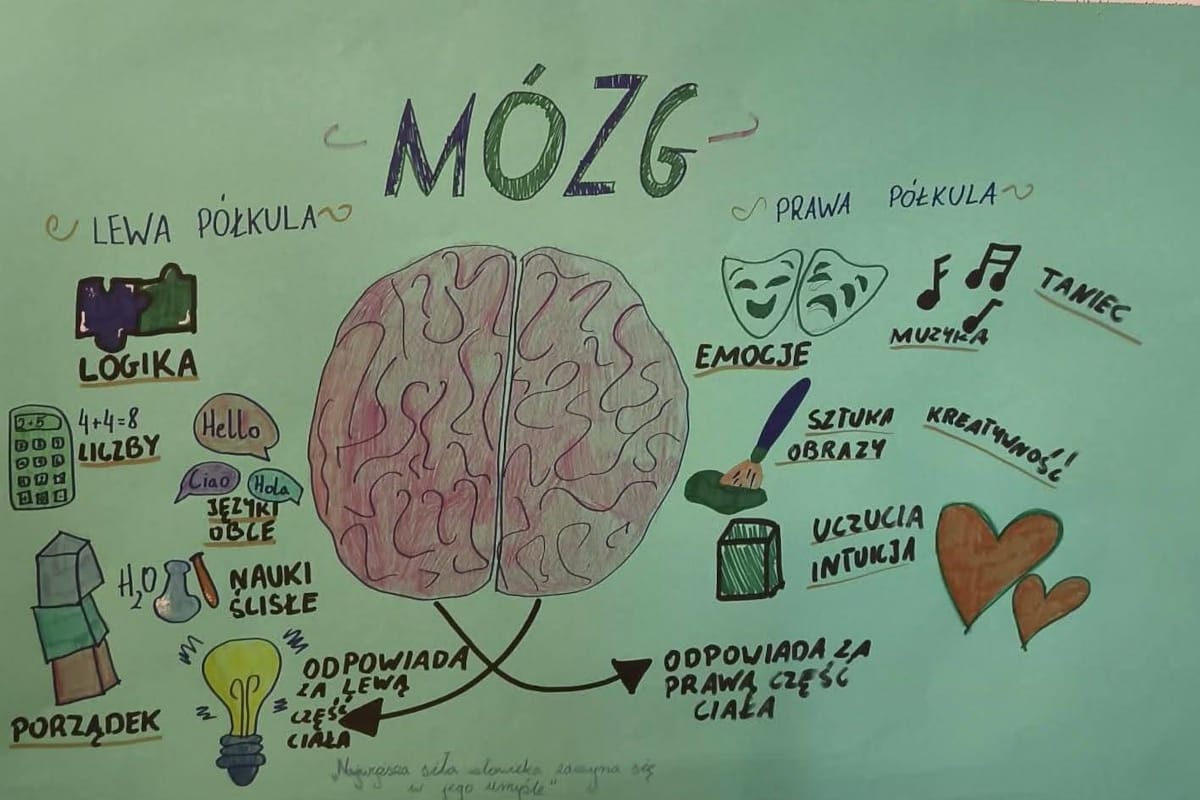 MÓZG
LEWA PÓŁKULA
LOGIKA
2+5
4+4=8
LICZBY
Hello
Ciao
Hola
JĘZYKI
OBCE
H₂O
NAUKI
ŚLISŁE
PORZĄDEK
ODPOWIADA
ZA LEWĄ
CZĘŚĆ
CIAŁA
PRAWA PÓŁKULA
EMOCJE
MUZYKA
TANIEC
SZTUKA
OBRAZY
KREATYWNOŚĆ!
UCZUCIA
INTUICJA
ODPOWIADA ZA
PRAWĄ CZĘŚĆ
CIAŁA
„Największa siła człowieka zaczyna się
w jego umyśle"